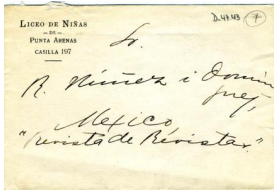 LICEO DE NIÑAS
— DE —
PUNTA ARENAS
CASILLA 197
D.47.43 (7)
Sr.
R. Núñez i Domín
guez,
Mexico
"Revista de Revistas".